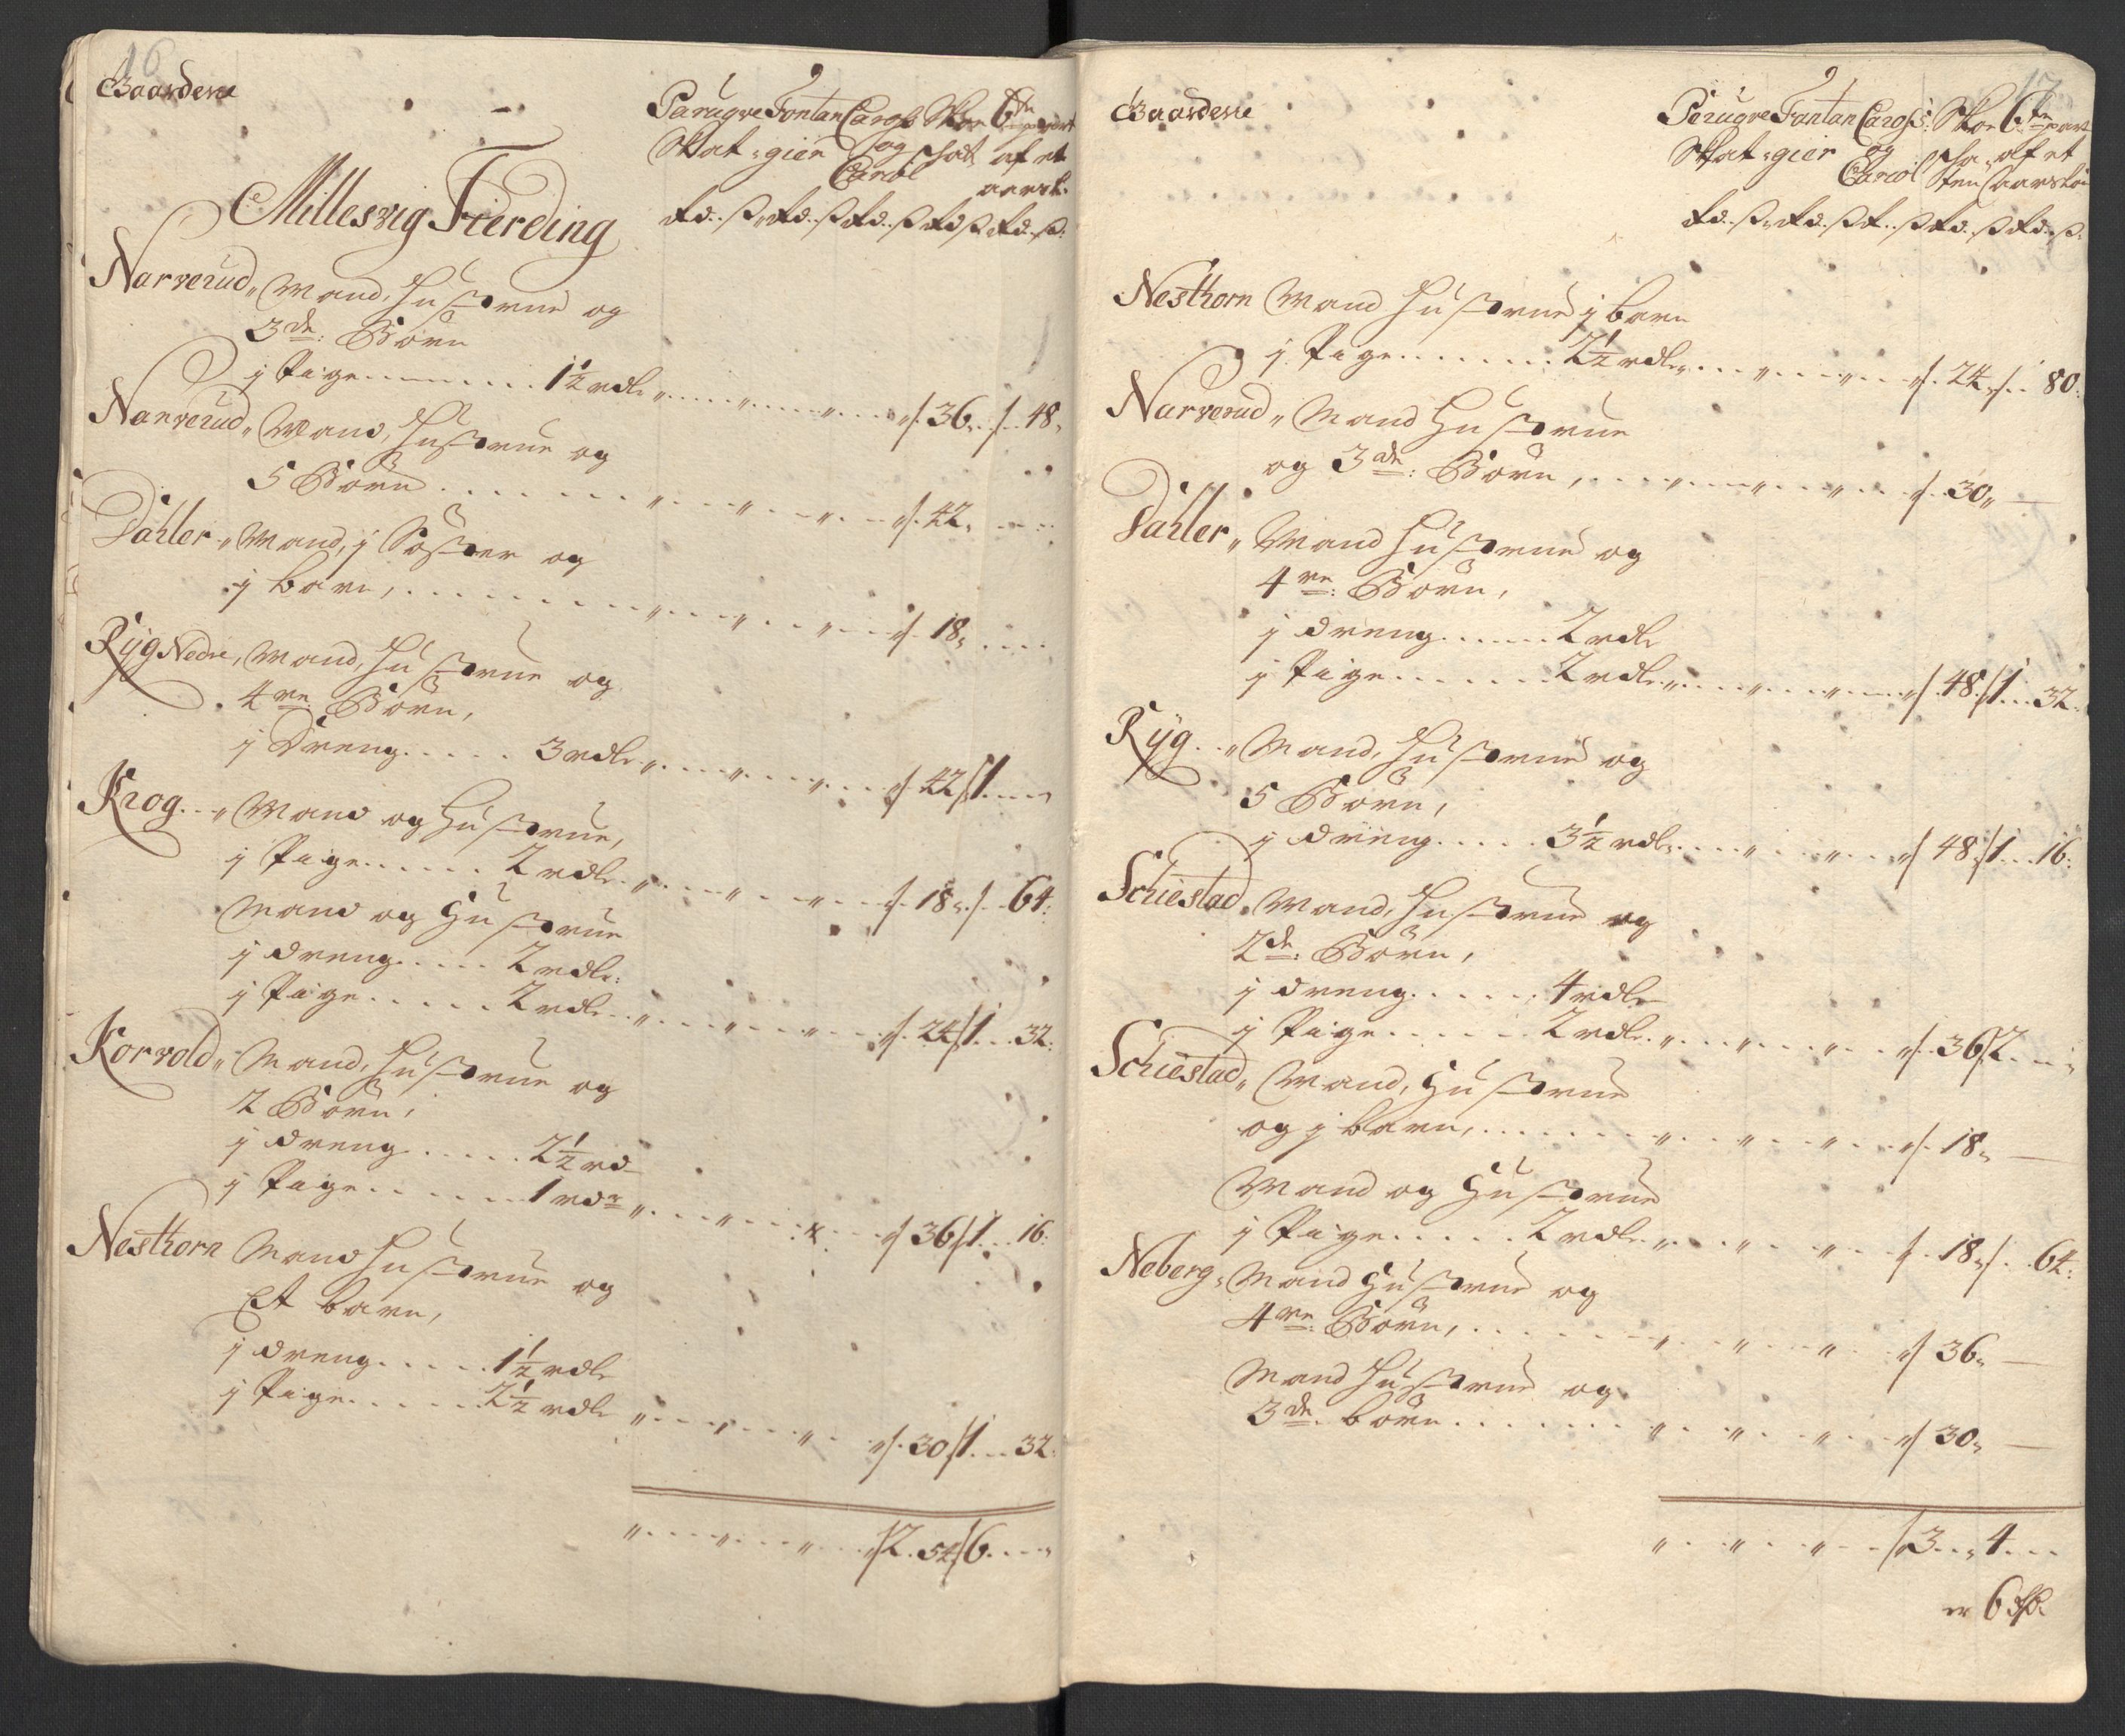 16
Gaarderne
Parugve Fontan Caroß Skoe 6te part
Skat gier og skat af et
Cariol aarsl.
Rd ß Rd ß Rd ß Rd ß Rd ß
Millesvig Fierding
Narverud Mand, Hustrue og
3de Børn
j Pige 1½ rdlr 36 48
Narverud Mand, Hustrue og
5 Børn 42
Dahler Mand, j Søster og
j barn, 18
Ryg Nedre, Mand, Hustrue og
4re Børn,
j Dreng 3 rdlr 42 1
Krog Mand og Hustrue,
j Pige 2 rdlr 18 64
Mand og Hustrue
j dreng 2 rdlr
j Pige 2 rdlr 24 1 32
Korvold Mand, Hustrue og
2 Børn,
j dreng 2½ rd
j Pige 1 rdr 36 1 16
Nesthorn Mand Hustrue og
Et barn,
j dreng 1½ rdlr
j Pige 2½ rdlr 30 1 32
2 54 6
17
Gaarderne
Perugve Fantan Caroß Skoe 6te part
Skat gier og af et
Cariol
Rd ß Rd ß R ß Rd ß Rd ß
Nesthorn Mand Hustrue j barn
j Pige 2½ rdlr 24 80
Narverud Mand Hustrue
og 3de Børn, 30
Dahler Mand Hustrue og
4re Børn,
j dreng 2 rdlr
j Pige 2 rdlr 48 1 32
Ryg Mand, Hustrue og
5 Børn,
j dreng 3½ rdlr 48 1 16
Schiestad Mand, Hustrue og
2de Børn,
j dreng 4 rdlr
j Pige 2 rdlr 36 2
Schiestad Mand, Hustrue
og j barn, 18
Mand og Hustrue
j Pige 2 rdlr 18 64
Neberg Mand Hustrue og
4re Børn, 36
Mand Hustrue og
3de børn 30
3 4
er 6